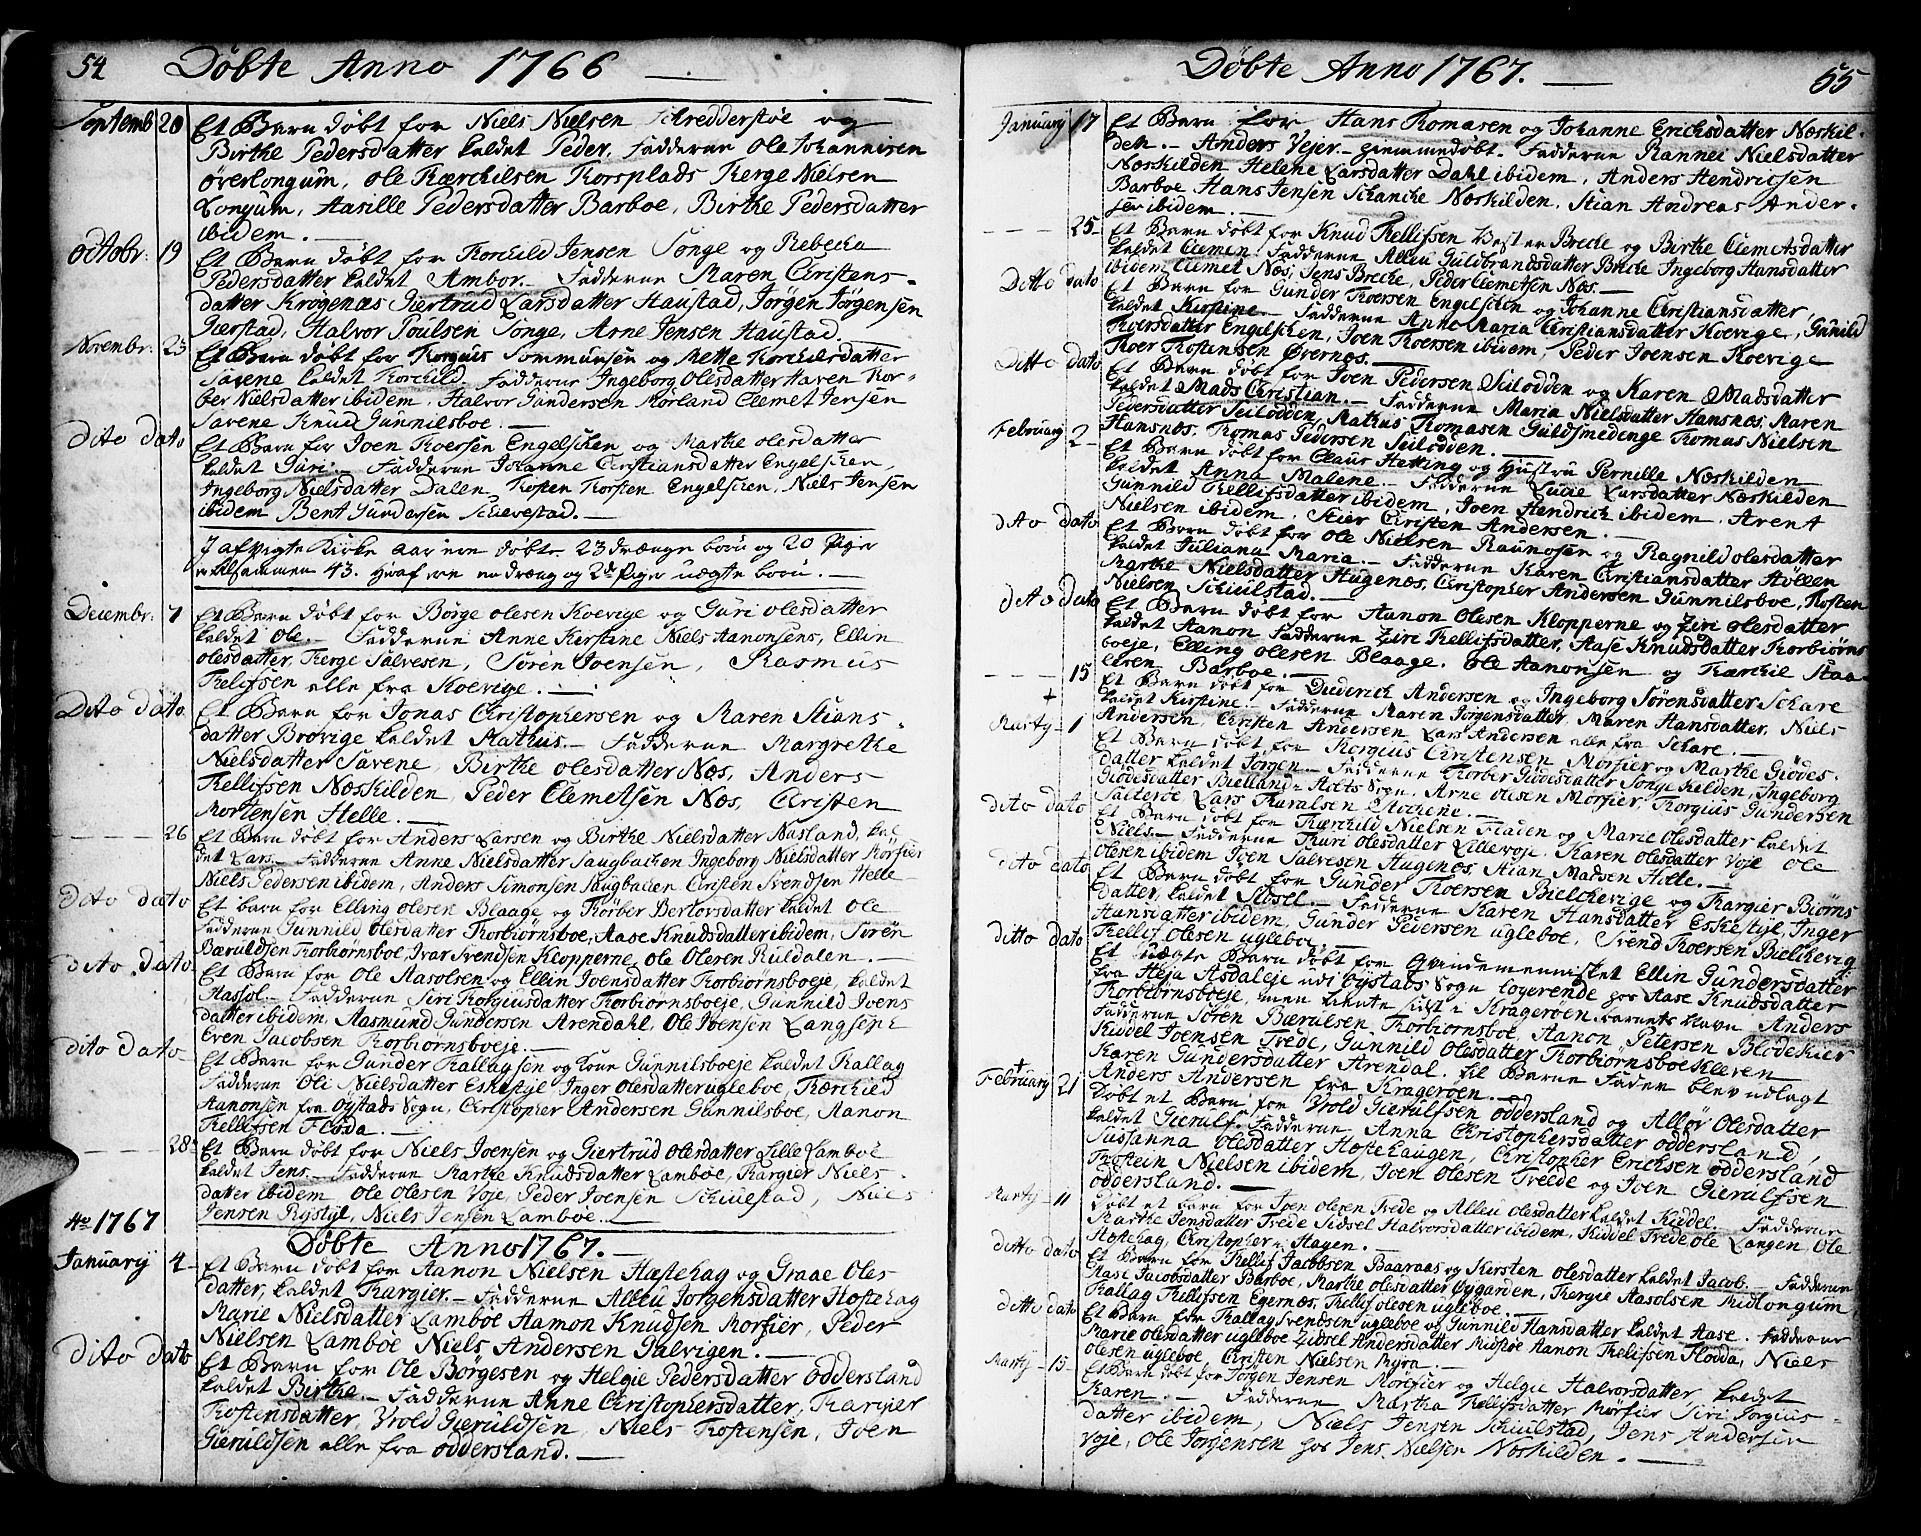 54 Døbte Anno 1766
Septemb 20 Et Barn døbt for Niels Nielsen Schredderstøe og
Birthe Pedersdatter kaldet Peder, Fadderne Ole Johannisen
Øverlongum, Ole Tærchilsen Torsplads Terge Nielsen
Longum, Aasille Pedersdatter Barboe, Birthe Pedersdatter
ibidem.
Octobr: 19 Et Barn døbt for Torchild Jensen Songe og Rebecha
Pedersdatter kaldet Ambor. Fadderne Maren Christens-
datter Krogenæs Giertrud Larsdatter Haustad, Jørgen Jørgensen
Gierstad, Halvor Poulsen Songe, Arne Jensen Haustad.
Novembr: 23 Et Barn døbt for Torguis Sommunsen og Mette Torchilsdatter
Savene kaldet Torchild. Fadderne Ingeborg Olesdatter Haven Tor-
ber Nielsdatter ibidem. Halvor Gundersen Morland Clemet Jensen
Savene Knud Gunnilsboe.
Dito dato Et Barn for Joen Thoersen Engelschen og Marthe olesdatter
kaldet Guri. Fadderne Johanne Christiansdatter Engelschen,
Ingeborg Nielsdatter Dalen, Thosten Torsten Engelschen, Niels Jensen
ibidem Bent Gundersen Schevestad.
I afvigte Kirke aar ere døbte 23 drænge børn og 20 Piger
er tilsammen 43. Hvaf ere en dræng og 2de Piger uægte børn.
Decembr: 7 Et Barn døbt for Børge olesen Koevige og Guri olesdatter
kaldet Ole. Fadderne Anne Kirstine Niels Aanonsens, Ellin
olesdatter, Terge Salvesen, Søren Joensen, Rasmus
Thelifsen alle fra Koevige.
Dito dato Et Barn for Jonas Christophersen og Maren Stians-
datter Brovige kaldet Mathus. Fadderne Margrethe
Nielsdatter Savene, Birthe olesdatter Næs, Anders
Thellifsen Næskilden, Peder Clemetsen Næs, Christen
Mortensen Helle.
26 Et Barn døbt for Anders Larsen og Birthe Nielsdatter Nasland, kal
det Lars. Fadderne Anne Nielsdatter Saugbachen Ingeborg Nielsdatter Mørfier
Niels Pedersen ibidem, Anders Simonsen Saugbachen Christen Svendsen Helle
Dito dato Et barn for Elling olesen Blaage og Thorber Bertorsdatter kaldet Ole
Fadderne Gunnild olesdatter Thorbiørnsboe, Aase Knudsdatter ibidem, Søren
Bæruldsen Thorbiørnsboe, Ivar Svendsen Klopperne, Ole Olesen Ruldalen.
dito dato Et Barn for Ole Aasolsen og Ellin Joensdatter Thorbiørnsboeje, kaldet
Aassol. Fadderne Siri Torgiusdatter Thorbiørnsboeje, Gunnild Joens
datter ibidem, Aasmund Gundersen Arendahl, Ole Joensen Langsene
Even Jacobsen Thorbiørnsboeje.
dito dato Et Barn for Gunder Tallagsen og kone Gunnilsboeje kaldet Tallag
Fadderne Oli Nielsdatter Eskestyl Inger Olesdatter ugleboe, Tærchild
Aanonsen fra Oystads Sogn, Christopher Andersen Gunnilsboe, Aanon
Thellifsen Floda.
28 Et Barn døbt for Niels Joensen og Giertrud olesdatter Lille Lamboe
kaldet Jens. Fadderne Marthe Knudsdatter Lamboe, Targier Niels-
datter ibidem Ole Olesen Voje, Peder Joensen Schiulstad, Niels
Jensen Rystyl, Niels Jensen Lamboe.
Ao 1767
Døbte Anno 1767.
Januarij 4 Et Barn døbt for Aanon Nielsen Hæstehag og Graae Oles
datter, kaldet Targier. Fadderne Alleu Jorgensdatter Hostehag
Marie Nielsdatter Lamboe Aamon Knudsen Morfier, Peder
Nielsen Lamboe Niels Andersen Galvigen.
dito dato Et Barn for Ole Børgesen og Helgie Pedersdatter oddersland
kaldet Birthe. Fadderne Anne Christophersdatter, Targier
Thostensdatter, Vrold Gieruldsen, Niels Thostensen, Joen
Gieruldsen alle fra oddersland.
Døbte Anno 1767. 55
January 17 Et Barn for Hans Thomasen og Johanne Erichsdatter Næskil-
den. Anders Vejer giemmedøbt. Fadderne Rannei Nielsdatter
Næskilden Helene Larsdatter Dahl ibidem, Anders Hendrichsen
Barboe Hans Jensen Schanche Næskilden, Stian Andreas Ander-
sen ibidem.
25 Et Barn døbt for Knud Thellifsen Vester Breche og Birthe Clemetsdatter
kaldet Clemen. Fadderne Alleu Guldbrandsdatter Breche Ingeborg Hansdatter
ibidem, Clemet Næs, Jens Breche, Peder Clemetsen Næs.
Ditto dato Et Barn for Gunder Thoersen Engelschen og Johanne Christiansdatter,
kaldet Kirstine. Fadderne Anne Maria Christiansdatter Koevige, Gunild
Thoersdatter Engelschen, Joen Thoersen ibidem, Peder Joensen Koevige
Thoer Thostensen Øvernæs.
Ditto dato Et Barn døbt for Joen Pedersen Seilodden og Karen Madsdatter
kaldet Mads Christian. Fadderne Maria Nielsdatter Hansnæs, Maren
Pedersdatter Seilodden, Mathus Thomasen Guldsmedenge Thomas Nielsen
Hansnæs, Thomas Pedersen Seilodden.
February 2 Et Barn døbt for Claus Hetting og Hustru Pernille Næskilden
kaldet Anna Malene. Fadderne Lucie Larsdatter Næskilden
Gunnild Thellifsdatter ibidem, Joen Hendrich ibidem, Arent
Nielsen ibidem, Steier Christen Andersen.
dito dato Et Barn døbt for Ole Nielsen Raunosen og Ragnild olesdatter
kaldet Juliana Maria. Fadderne Karen Christiansdatter Høllen
Marthe Nielsdatter Hugenæs, Christopher Andersen Gunnilsboe, Thosten
Nielsen Schiulstad.
dito dato Et Barn døbt for Aanon Olesen Klopperne og Ziri olesdatter
kaldet Aanon Fadderne Ziri Thellifsdatter, Aase Knudsdatter Thorbiørns
boeje, Elling olesen Blaage. Ole Aanonsen og Tærchil Staa-
elsen Barboe.
15 Et Barn døbt for Diderich Andersen og Ingeborg Sørensdatter Schare
kaldet Kirstine. Fadderne Maren Jorgensdatter, Maren Hansdatter, Niels
Andersen, Christen Andersen Lars Andersen alle fra Schare.
Marty 1 Et Barn døbt for Torguis Christensen Mørfier og Marthe Giødes-
datter kaldet Jorgen. Fadderne Thorber Giødesdatter Songe Kelden, Ingeborg
Giødesdatter Bielland i Holts Sogn, Arne Olesen Mørfier, Thorguis Gundersen
Salterøe Lars Thuralsen Stochene.
dito dato Et Barn døbt for Tærchild Nielsen Fladen og Marie olesdatter kaldet
Niels. Fadderne Thuri olesdatter Lillevoje, Karen olesdatter Voje Ole
Olesen ibidem Joen Salvesen Hugenæs, Stian Madsen Helle.
dito dato Et Barn døbt for Gunder Thoersen Bielchevige og Targier Biørns
datter, kaldet Sibsel. Fadderne Karen Hansdatter Eskestyl, Inger
Hansdatter ibidem, Gunder Pedersen ugleboe, Svend Thoersen Bielchevig
Thellif olesen ugleboe.
ditto dato Et uægte Barn døbt for Qvindemennisket Ellin Gundersdatter
fra Heja Asdaleje udi Oystads Sogn logerende hos Aase Knudsdatter
Thorbiørnsboeje, men tiente sidst i Kragerøen. barnets Navn Anders
Fadderne Søren Bærulsen, Thorbiornsboe, Aanon Petersen Blodekier
Kiddel Joensen Trede, Gunnild Olesdatter Thorbiørnsboe Kleven
Karen Gundersdatter Arendal. til Barne Fader blev udlagt
Anders Andersen fra Kragerøen.
February 21 Døbt et Barn for Vrold Gierulfsen oddersland og Alløv Olesdatter
kaldet Gierulf. Fadderne Anna Christophersdatter oddersland,
Sussanna olesdatter Hostehaugen, Christopher Erichsen oddersland
Thostein Nielsen ibidem, Joen Olesen Tvede og Joen Gierulfsen
oddersland.
Marty 11 Døbt et barn for Joen Olesen Trede og Alleu Olesdatter kaldet Kiddel. Fadderne
Marthe Jensdatter Trede Sidsel Halvorsdatter ibidem, Kiddel Trede Ole Langen, Ole
Hostehag, Christopher i Hagen.
ditto dato Et Barn for Thellif Jacobsen Baaraas og Kirsten Olesdatter kaldet Jacob. Fadderne
Aase Jacobsdatter Barboe, Marthe olesdatter Øygarden, Tergie Aasolsen Midlongum
Tallag Thellifsen Egernæs, Thellif olesen ugleboe.
ditto dato Et Barn for Tallag Svendsen ugleboe og Gunnild Hansdatter kaldet Aase. Fadderne
Marie olesdatter ugleboe Zidsel Andersdatter Midstøe Aanon Thelifsen Flodda, Niels
olesen ugleboe, Christen Nielsen Myra.
Marty 15 Et Barn døbt for Jorgen Jensen Mørefier og Helgie Halvorsdatter, kaldet
Karen. Fadderne Martha Thellifsdatter Mørfier Siri Torgius-
datter ibidem, Niels Jensen Schiulstad, Jens Andersen
Voje, Ole Jorgensen hos Jens Nielsen Næskilden.